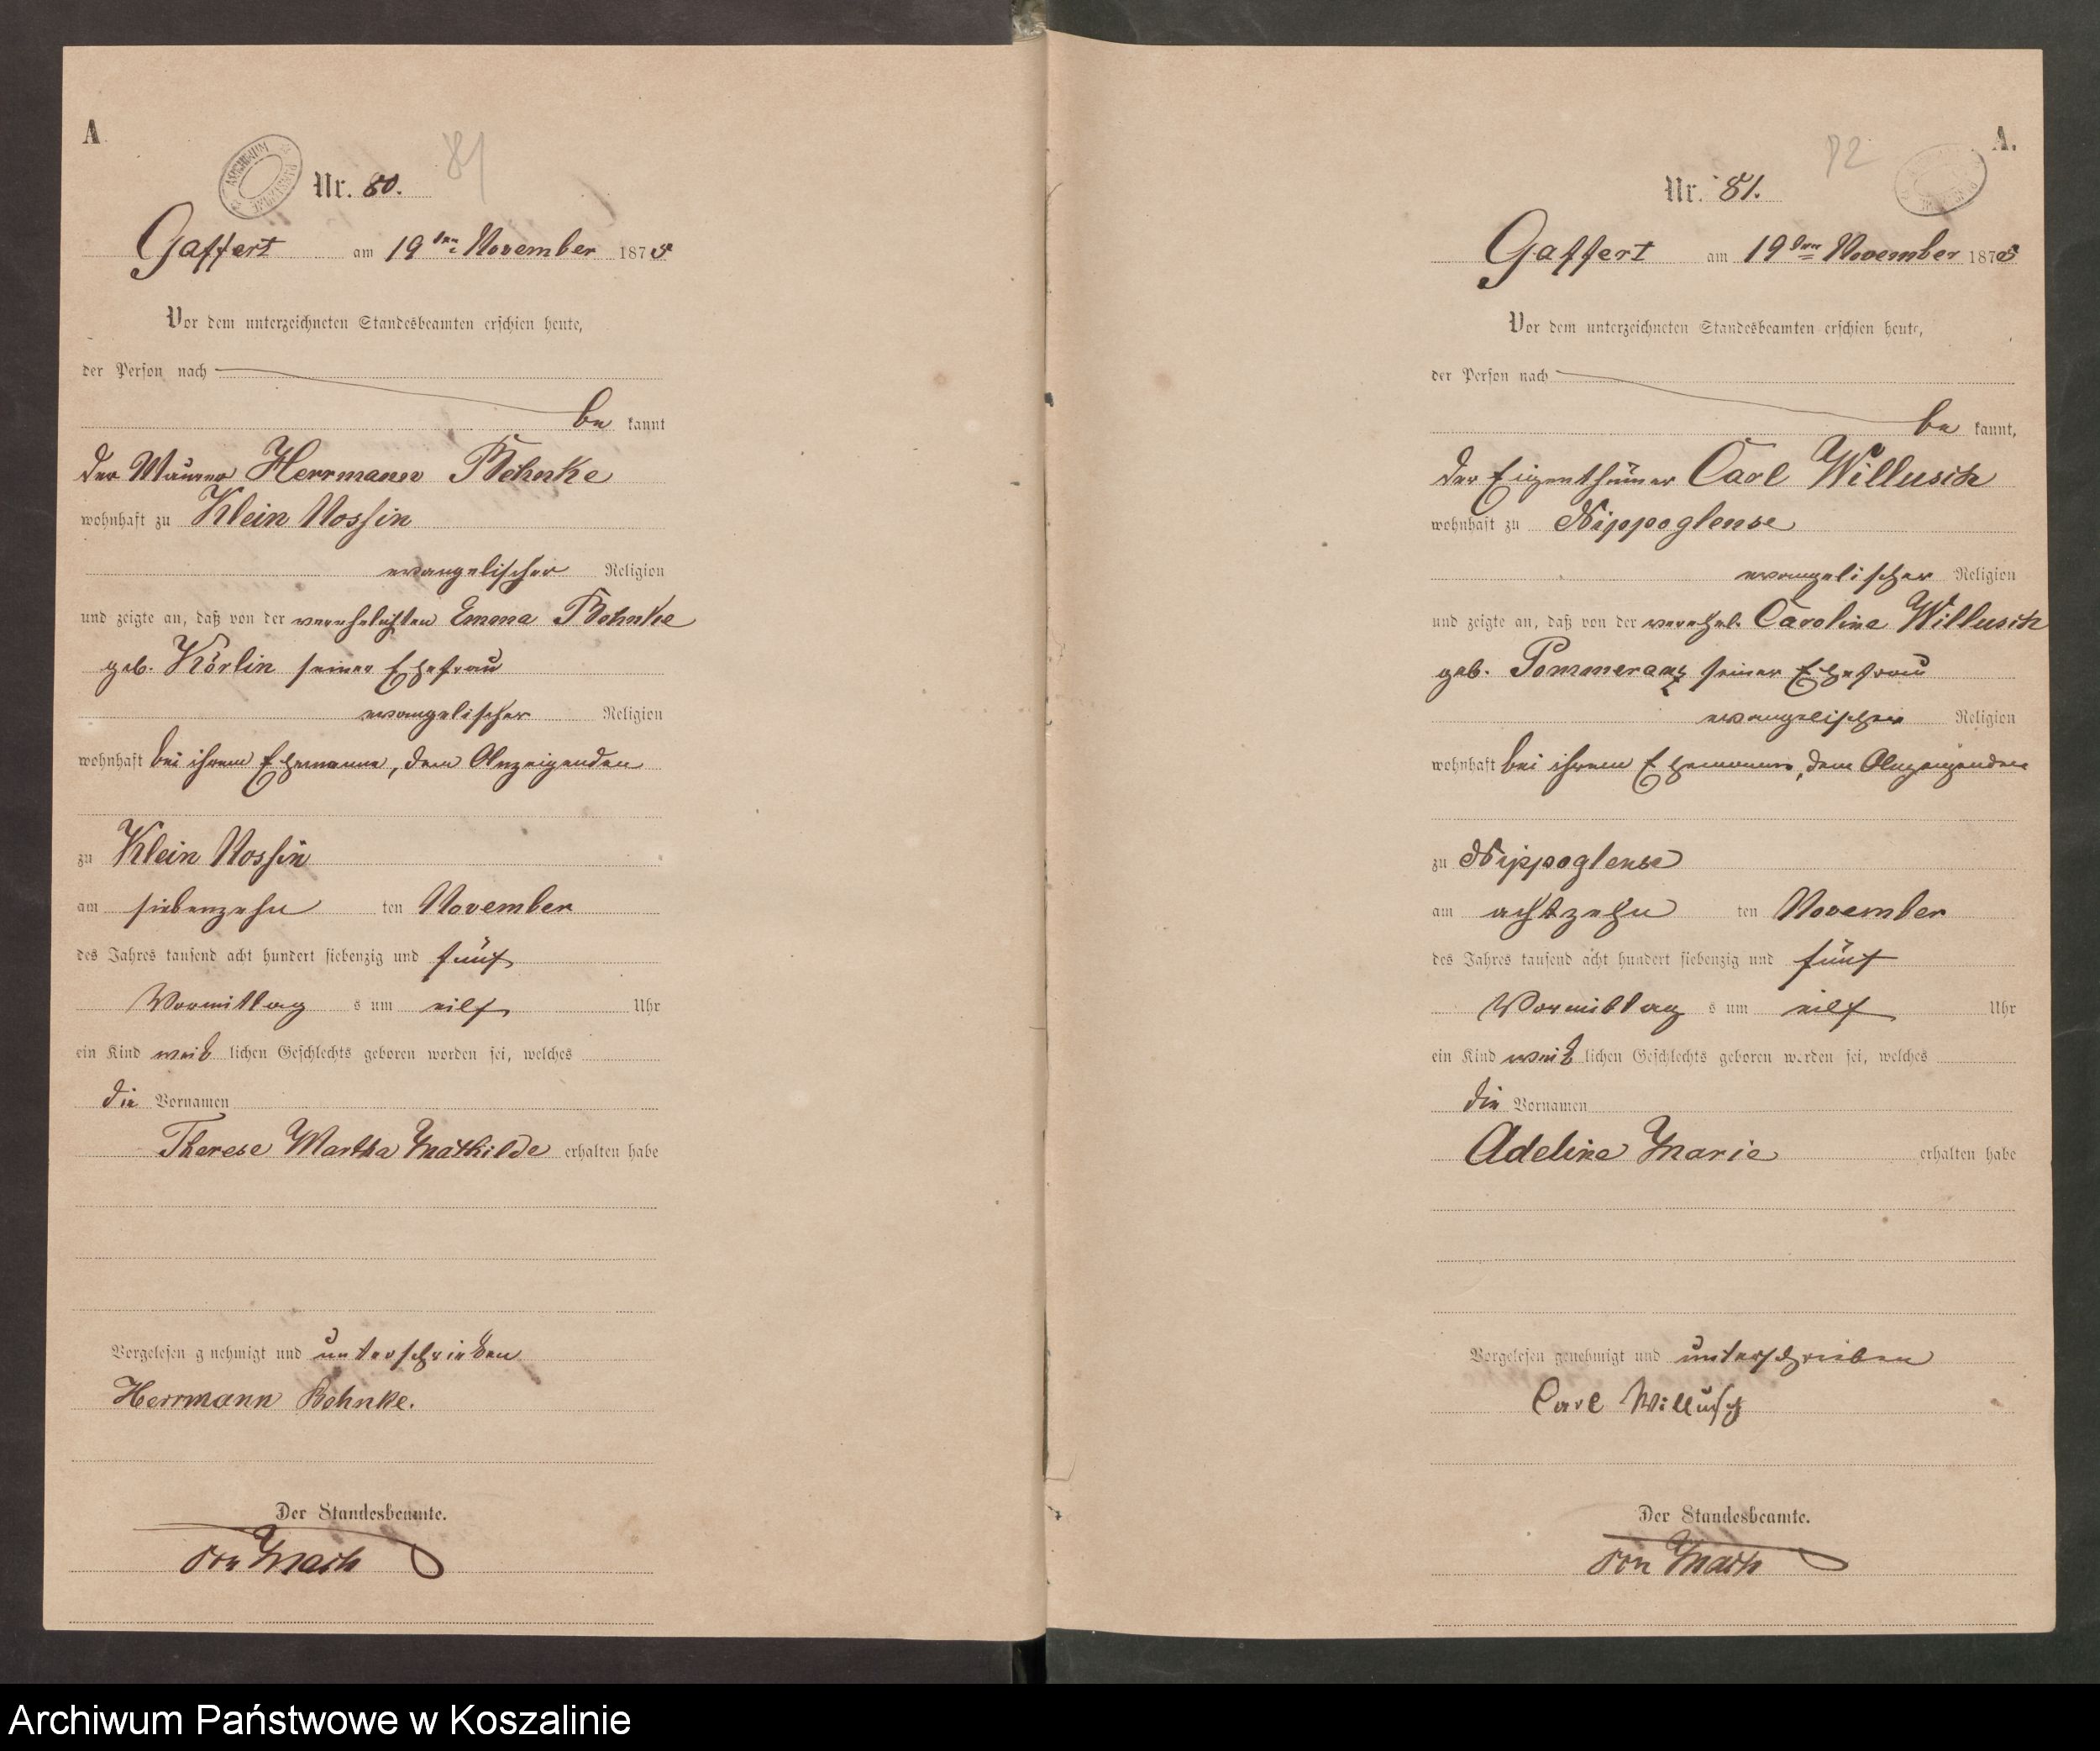 A
81
Nr. 80.
Gaffert am 19ten November 1875
Vor dem unterzeichneten Standesbeamten erschien heute,
der Person nach
be kannt
der Maurer Herrmann Behnke
wohnhaft zu Klein Nossin
evangelischer Religion
und zeigte an, daß von der verehelichten Emma Behnke
geb. Körlin seiner Ehefrau
evangelischer Religion
wohnhaft bei ihrem Ehemanne, dem Anzeigenden
zu Klein Nossin
am siebenzehn ten November
des Jahres tausend acht hundert siebenzig und fünf
Vormittag s um eilf Uhr
ein Kind weib lichen Geschlechts geboren worden sei, welches
die Vornamen
Therese Martha Mathilde erhalten habe
Vorgelesen g nehmigt und unterschrieben
Herrmann Behnke.
Der Standesbeamte.
von Mach
A.
82
Nr. 81.
Gaffert am 19ten November 1875
Vor dem unterzeichneten Standesbeamten erschien heute,
der Person nach
be kannt,
der Eigenthümer Carl Willusch
wohnhaft zu Nippoglense
evangelischer Religion
und zeigte an, daß von der verehel. Caroline Willusch
geb. Pommeranz seiner Ehefrau
evangelischer Religion
wohnhaft bei ihrem Ehemanne, dem Anzeigenden
zu Nippoglense
am achtzehn ten November
des Jahres tausend acht hundert siebenzig und fünf
Vormittag s um eilf Uhr
ein Kind weib lichen Geschlechts geboren worden sei, welches
die Vornamen
Adeline Marie erhalten habe
Vorgelesen genehmigt und unterschrieben
Carl Willusch
Der Standesbeamte.
von Mach
Archiwum Państwowe w Koszalinie